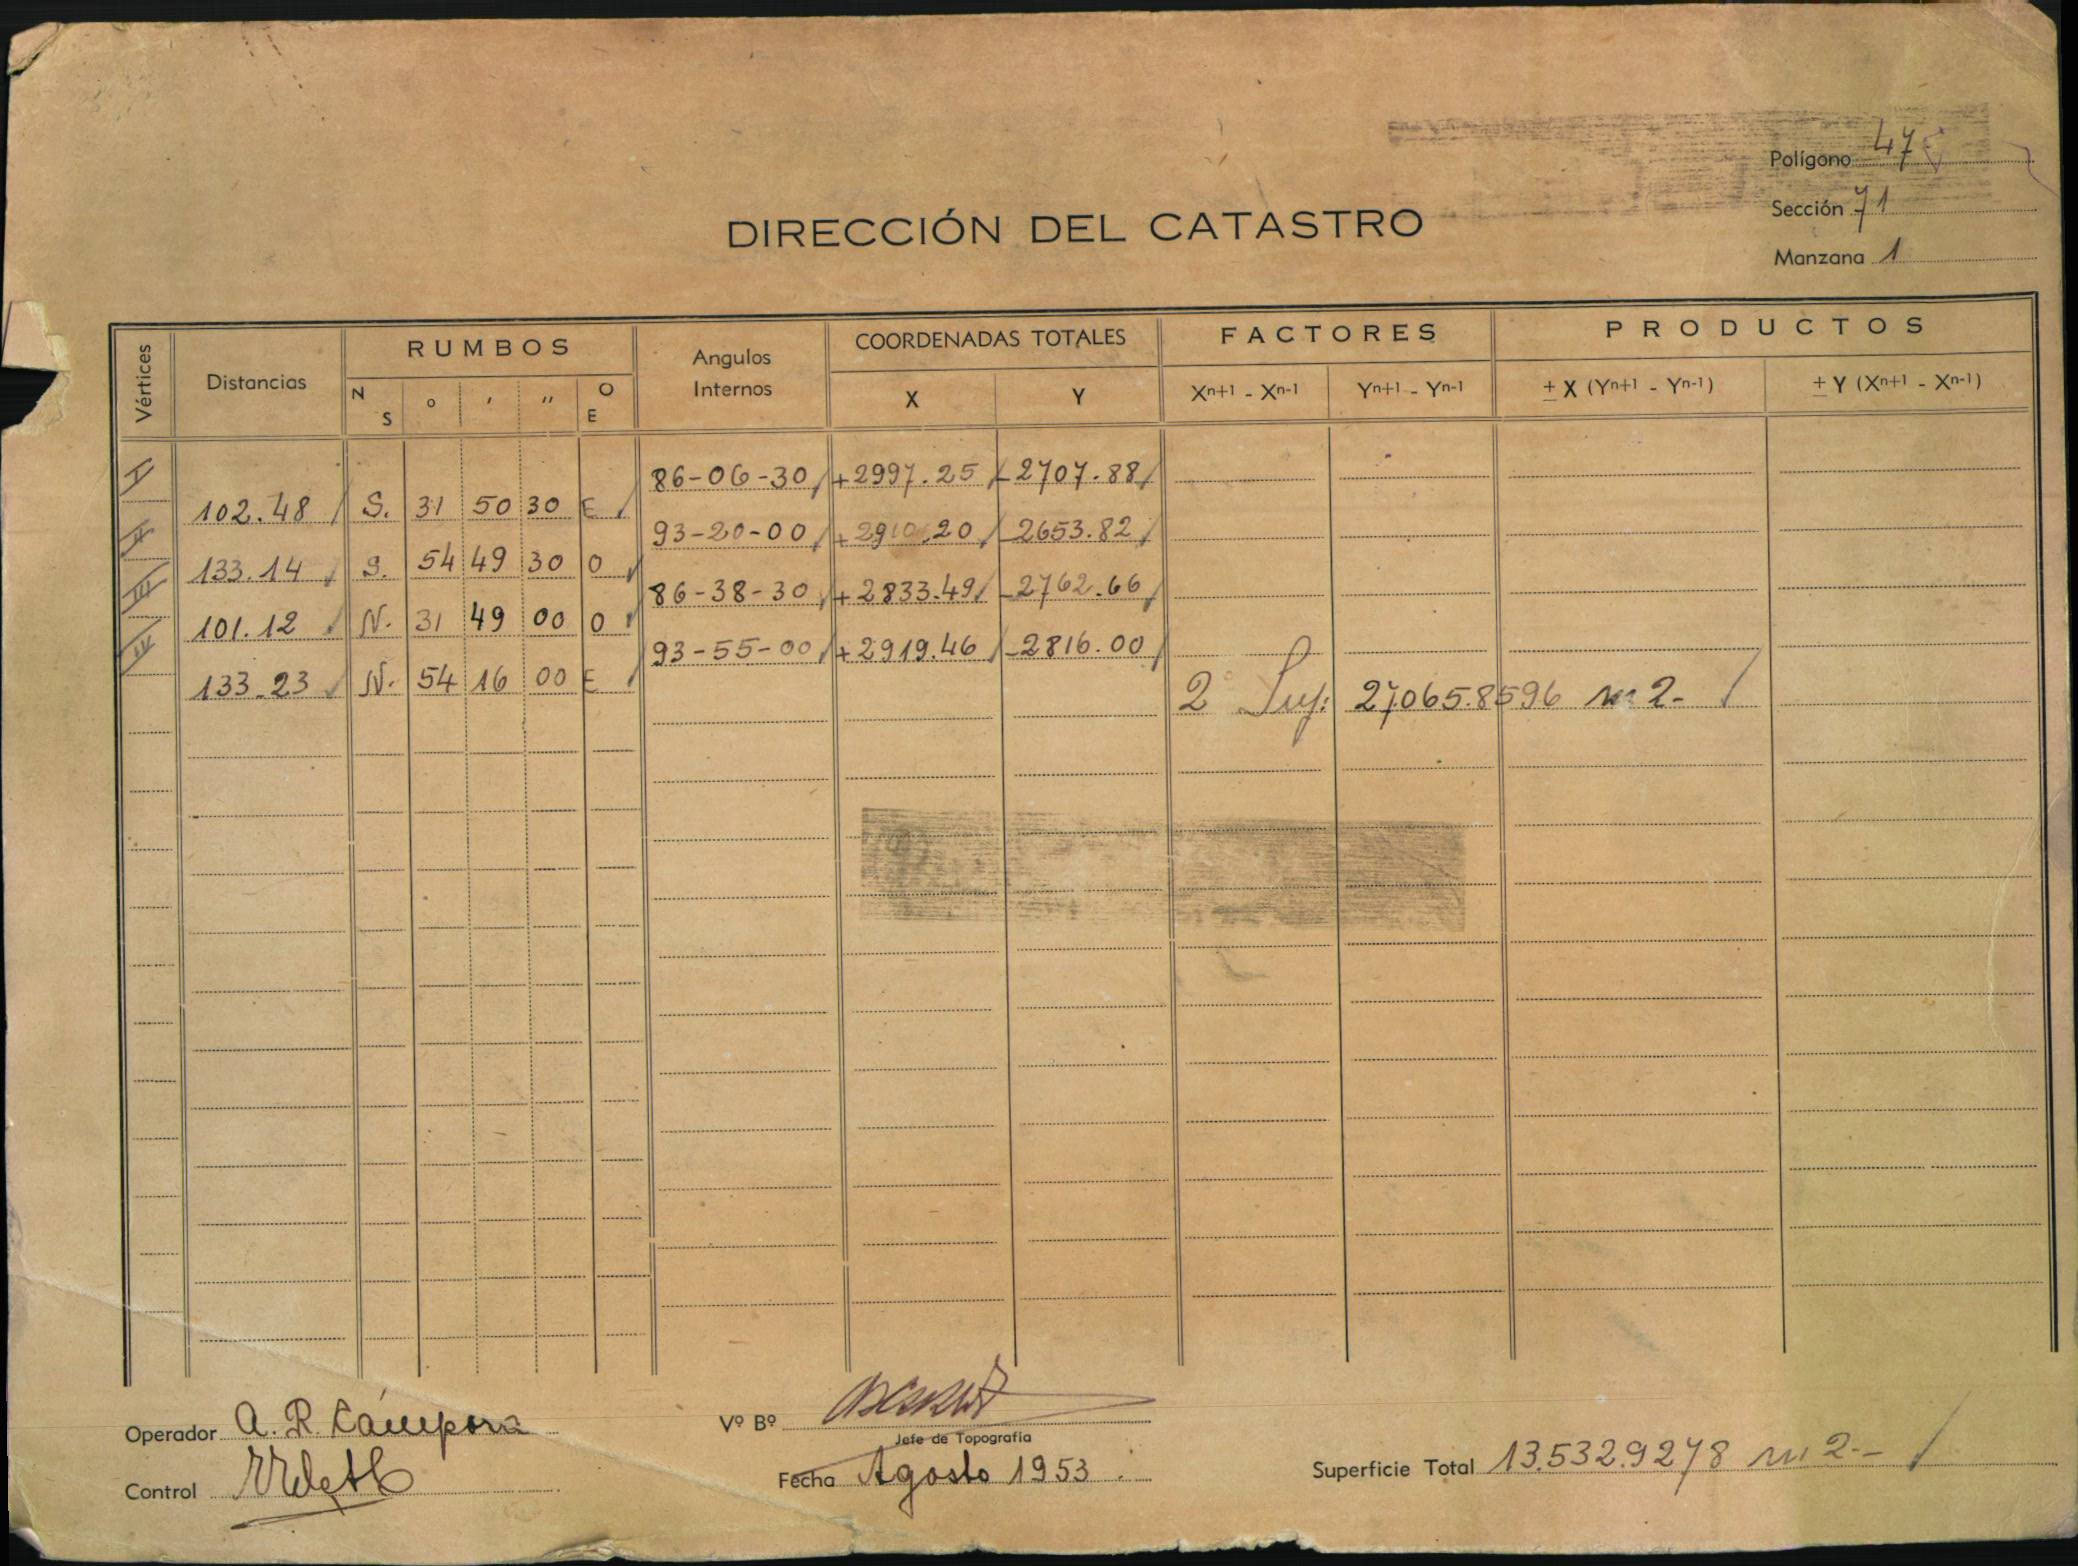 Polígono 47
Sección 71
Manzana 1
DIRECCIÓN DEL CATASTRO
Vértices Distancias RUMBOS Angulos Internos COORDENADAS TOTALES FACTORES PRODUCTOS
N S o ′ ″ O E X Y Xn+1 - Xn-1 Yn+1 - Yn-1 ± X (Yn+1 - Yn-1) ± Y (Xn+1 - Xn-1)
I 86-06-30 +2997.25 -2707.88
102.48 S. 31 50 30 E
II 93-20-00 +2910.20 -2653.82
133.14 S. 54 49 30 O
III 86-38-30 +2833.49 -2762.66
101.12 N. 31 49 00 O
IV 93-55-00 +2919.46 -2816.00
133.23 N. 54 16 00 E
2 Sup: 27.065.8596 m2-
Operador A. R. Cámpora
Vº Bº
Jefe de Topografía
Control
Fecha Agosto 1953.
Superficie Total 13.532.9278 m2--